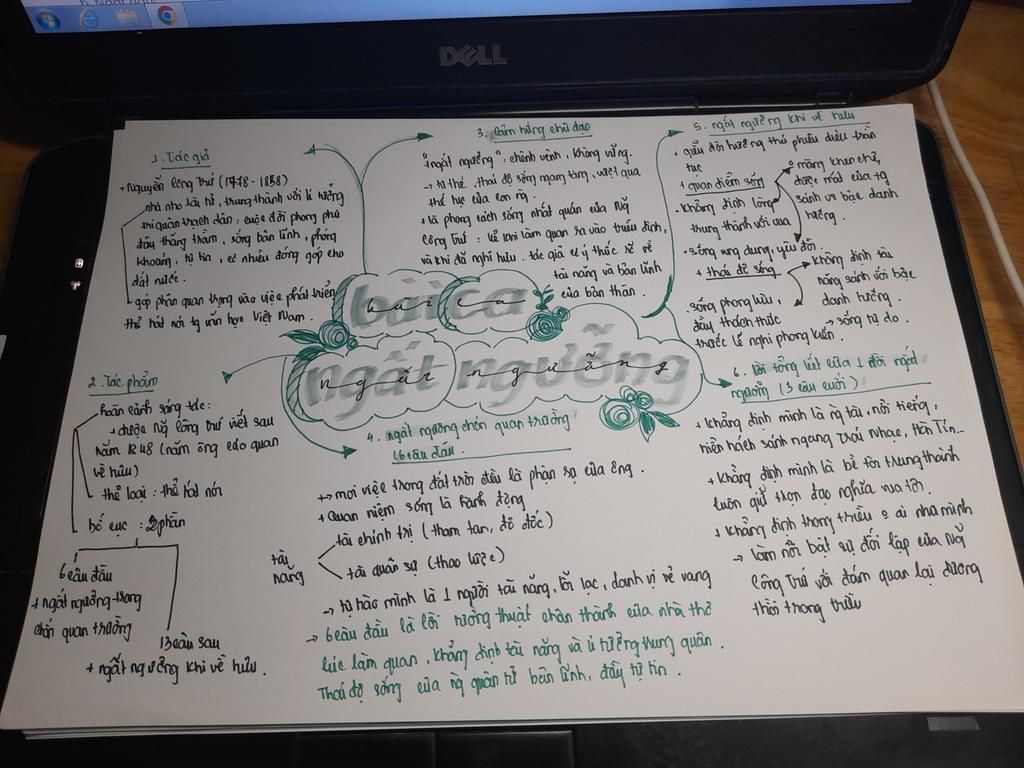 DELL
bài ca
ngất ngưỡng
1. Tác giả
+ Nguyễn Công Trứ (1778 - 1858)
nhà nho tài tử, trung thành với lí tưởng
trí quân trạch dân : cuộc đời phong phú
đầy thăng trầm, sống bản lĩnh, phóng
khoáng, tự tin, có nhiều đóng góp cho
đất nước.
góp phần quan trọng vào việc phát triển
thể hát nói tg văn học Việt Nam.
2. Tác phẩm
hoàn cảnh sáng tác:
+ được Ng Công Trứ viết sau
năm 1848 (năm ông cáo quan
về hưu)
thể loại : thể hát nói
bố cục : 2 phần
6 câu đầu
+ ngất ngưởng trong
chốn quan trường
13 câu sau
+ ngất ngưởng khi về hưu.
3. Cảm hứng chủ đạo
"ngất ngưởng", chênh vênh, không vững.
→ tư thế, thái độ sống ngang tàng, vượt qua
thế tục của con ng.
+ là phong cách sống nhất quán của Ng
Công Trứ : kể khi làm quan ra vào triều đình,
và khi đã nghỉ hưu. tác giả có ý thức rõ về
tài năng và bản lĩnh
của bản thân.
4. ngất ngưởng chốn quan trường
(6 câu đầu.
+→ mọi việc trong đất trời đều là phận sự của ông.
+ Quan niệm sống là hành động
tài năng
tài chính trị (tham tán, đô đốc)
tài quân sự (thao lược)
→ tự hào mình là 1 người tài năng, lỗi lạc, danh vị vẻ vang
→ 6 câu đầu là lời tường thuật chân thành của nhà thơ
lúc làm quan, khẳng định tài năng và lí tưởng trung quân.
Thái độ sống của ng quân tử bản lĩnh, đầy tự tin.
5. ngất ngưởng khi về hưu
+ quan điểm sống
- khẳng định lòng
trung thành với vua
- sống ung dung, yêu đời.
+ thái độ sống
sống phong lưu,
đầy thách thức
trước lễ nghi phong kiến
khẳng định tài
năng sánh với bậc
danh tướng.
→ sống tự do.
6. Lời tổng kết của 1 đời ngất
ngưởng (3 câu cuối)
+ khẳng định mình là ng tài, nổi tiếng,
hiển hách sánh ngang trái nhạc, Hàn Tín...
+ khẳng định mình là bề tôi trung thành
luôn giữ trọn đạo nghĩa vua tôi.
+ khẳng định trong triều o ai như mình
→ làm nổi bật sự đối lập của Ng
Công Trứ với đám quan lại đương
thời trong triều